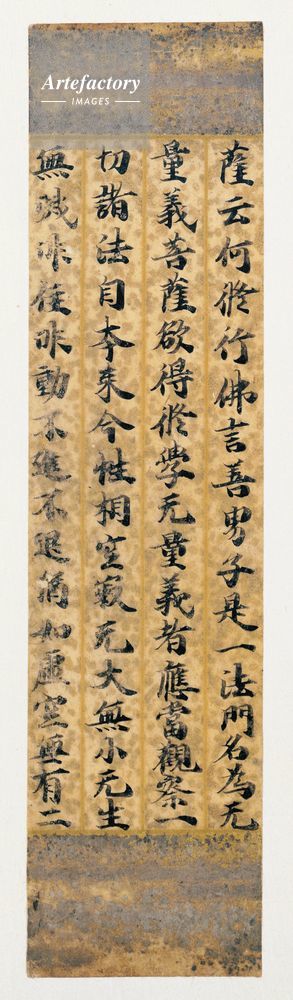 Artefactory
IMAGES
薩云何修行佛言善男子是一法門名為无
量義菩薩欲得修學无量義者應當觀察一
切諸法自本来今性相空寂无大無小无生
無滅非住非動不進不退猶如虚空無有二